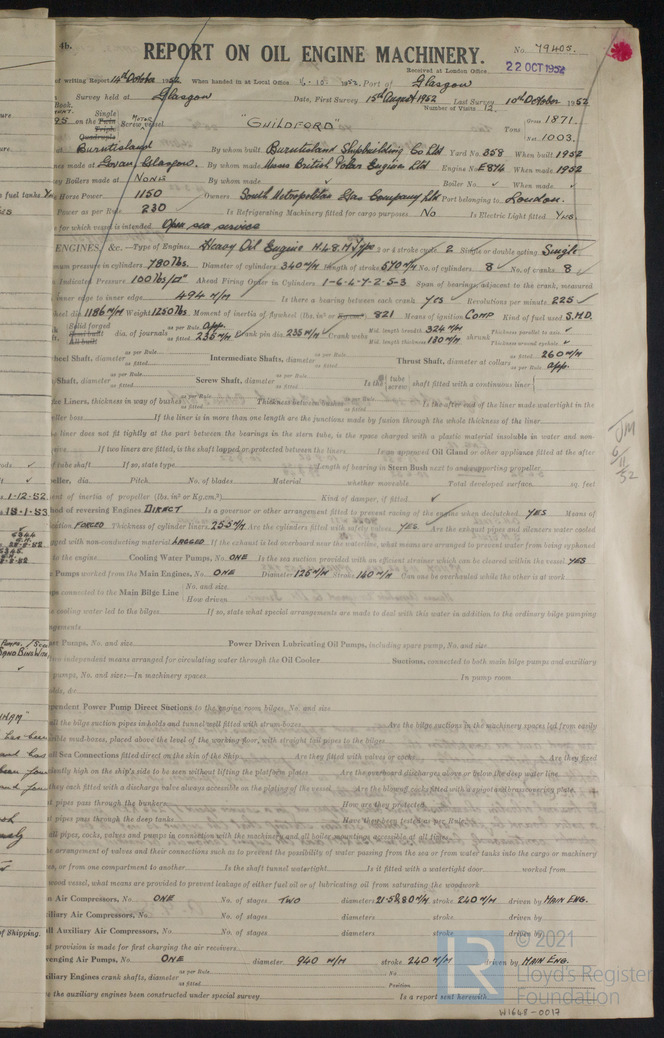 4b.
REPORT ON OIL ENGINE MACHINERY.
No. 79405.
Received at London Office
22 OCT 1952
of writing Report 14th October 1952 When handed in at Local Office 16-10-1952 Port of Glasgow
Survey held at Glasgow Date, First Survey 15th August 1952 Last Survey 10th October 1952
Book. Number of Visits 12
on the Single Twin Triple Quadruple Screw vessel MOTOR "GUILDFORD" Tons Gross 1871. Net 1003.
at Burntisland By whom built Burntisland Shipbuilding Co Ltd Yard No. 358 When built 1952
es made at Govan, Glasgow. By whom made Messrs British Polar Engines Ltd Engine No. E876 When made 1952
ey Boilers made at NONE By whom made Boiler No. When made
Horse Power 1150 Owners South Metropolitan Gas Company Ltd Port belonging to London.
Power as per Rule 230 Is Refrigerating Machinery fitted for cargo purposes No Is Electric Light fitted YES.
for which vessel is intended Open sea service
ENGINES, &c. —Type of Engines Heavy Oil Engine N48M Type 2 or 4 stroke cycle 2 Single or double acting Single
mum pressure in cylinders 780 lbs. Diameter of cylinders 340 M/M Length of stroke 570 M/M No. of cylinders 8 No. of cranks 8
Indicated Pressure 100 lbs/□" Ahead Firing Order in Cylinders 1-6-4-7-2-5-3 Span of bearings, adjacent to the crank, measured
inner edge to inner edge 494 M/M Is there a bearing between each crank YES Revolutions per minute 225
heel dia. 1186 M/M Weight 1250 lbs. Moment of inertia of flywheel (lbs. in² or Kg.cm²) 821 Means of ignition COMP Kind of fuel used S.M.D.
Solid forged Semi built All built dia. of journals as per Rule App. as fitted 235 M/M Crank pin dia. 235 M/M Crank webs Mid. length breadth 324 M/M Mid. length thickness 130 M/M shrunk Thickness parallel to axis Thickness around eyehole
heel Shaft, diameter as per Rule as fitted Intermediate Shafts, diameter as per Rule as fitted Thrust Shaft, diameter at collars as fitted 260 M/M as per Rule App.
Shaft, diameter as per Rule as fitted Screw Shaft, diameter as per Rule as fitted Is the tube screw shaft fitted with a continuous liner
Liners, thickness in way of bushes as per Rule as fitted Thickness between bushes as per Rule as fitted Is the after end of the liner made watertight in the
ller boss If the liner is in more than one length are the junctions made by fusion through the whole thickness of the liner
he liner does not fit tightly at the part between the bearings in the stern tube, is the space charged with a plastic material insoluble in water and non-
If two liners are fitted, is the shaft lapped or protected between the liners Is an approved Oil Gland or other appliance fitted at the after
f tube shaft If so, state type Length of bearing in Stern Bush next to and supporting propeller
peller, dia Pitch No. of blades Material whether moveable Total developed surface sq. feet
ent of inertia of propeller (lbs. in² or Kg.cm²) Kind of damper, if fitted
hod of reversing Engines DIRECT Is a governor or other arrangement fitted to prevent racing of the engine when declutched YES Means of
ication FORCED Thickness of cylinder liners 25.5 M/M Are the cylinders fitted with safety valves YES Are the exhaust pipes and silencers water cooled
gged with non-conducting material LAGGED If the exhaust is led overboard near the waterline, what means are arranged to prevent water from being syphoned
to the engine Cooling Water Pumps, No. ONE Is the sea suction provided with an efficient strainer which can be cleared within the vessel YES
Pumps worked from the Main Engines, No. ONE Diameter 125 M/M Stroke 140 M/M Can one be overhauled while the other is at work
ps connected to the Main Bilge Line No. and size How driven
e cooling water led to the bilges If so, state what special arrangements are made to deal with this water in addition to the ordinary bilge pumping
ngements
Pumps, No. and size Power Driven Lubricating Oil Pumps, including spare pump, No. and size
independent means arranged for circulating water through the Oil Cooler Suctions, connected to both main bilge pumps and auxiliary
pumps, No. and size:—In machinery spaces In pump room
olds, &c
pendent Power Pump Direct Suctions to the engine room bilges, No. and size
ll the bilge suction pipes in holds and tunnel well fitted with strum-boxes Are the bilge suctions in the machinery spaces led from easily
sible mud-boxes, placed above the level of the working floor, with straight tail pipes to the bilges
ll Sea Connections fitted direct on the skin of the Ship Are they fitted with valves or cocks Are they fixed
iently high on the ship's side to be seen without lifting the platform plates Are the overboard discharges above or below the deep water line
they each fitted with a discharge valve always accessible on the plating of the vessel Are the blow off cocks fitted with a spigot and brass covering plate
t pipes pass through the bunkers How are they protected
t pipes pass through the deep tanks Have they been tested as per Rule
ll pipes, cocks, valves and pumps in connection with the machinery and all boiler mountings accessible at all times
e arrangement of valves and their connections such as to prevent the possibility of water passing from the sea or from water tanks into the cargo or machinery
es, or from one compartment to another Is the shaft tunnel watertight Is it fitted with a watertight door worked from
wood vessel, what means are provided to prevent leakage of either fuel oil or of lubricating oil from saturating the woodwork
n Air Compressors, No. ONE No. of stages TWO diameters 215 & 80 M/M stroke 240 M/M driven by MAIN ENG.
iliary Air Compressors, No. No. of stages diameters stroke driven by
ll Auxiliary Air Compressors, No. No. of stages diameters stroke driven by
t provision is made for first charging the air receivers
venging Air Pumps, No. ONE diameter 940 M/M stroke 240 M/M driven by MAIN ENG.
xiliary Engines crank shafts, diameter as per Rule as fitted No. Position
e the auxiliary engines been constructed under special survey Is a report sent herewith
JM
6/11/52
1-12-52
18-1-53
of Shipping.
LR
© 2021
Lloyd's Register
Foundation
W1648-0017